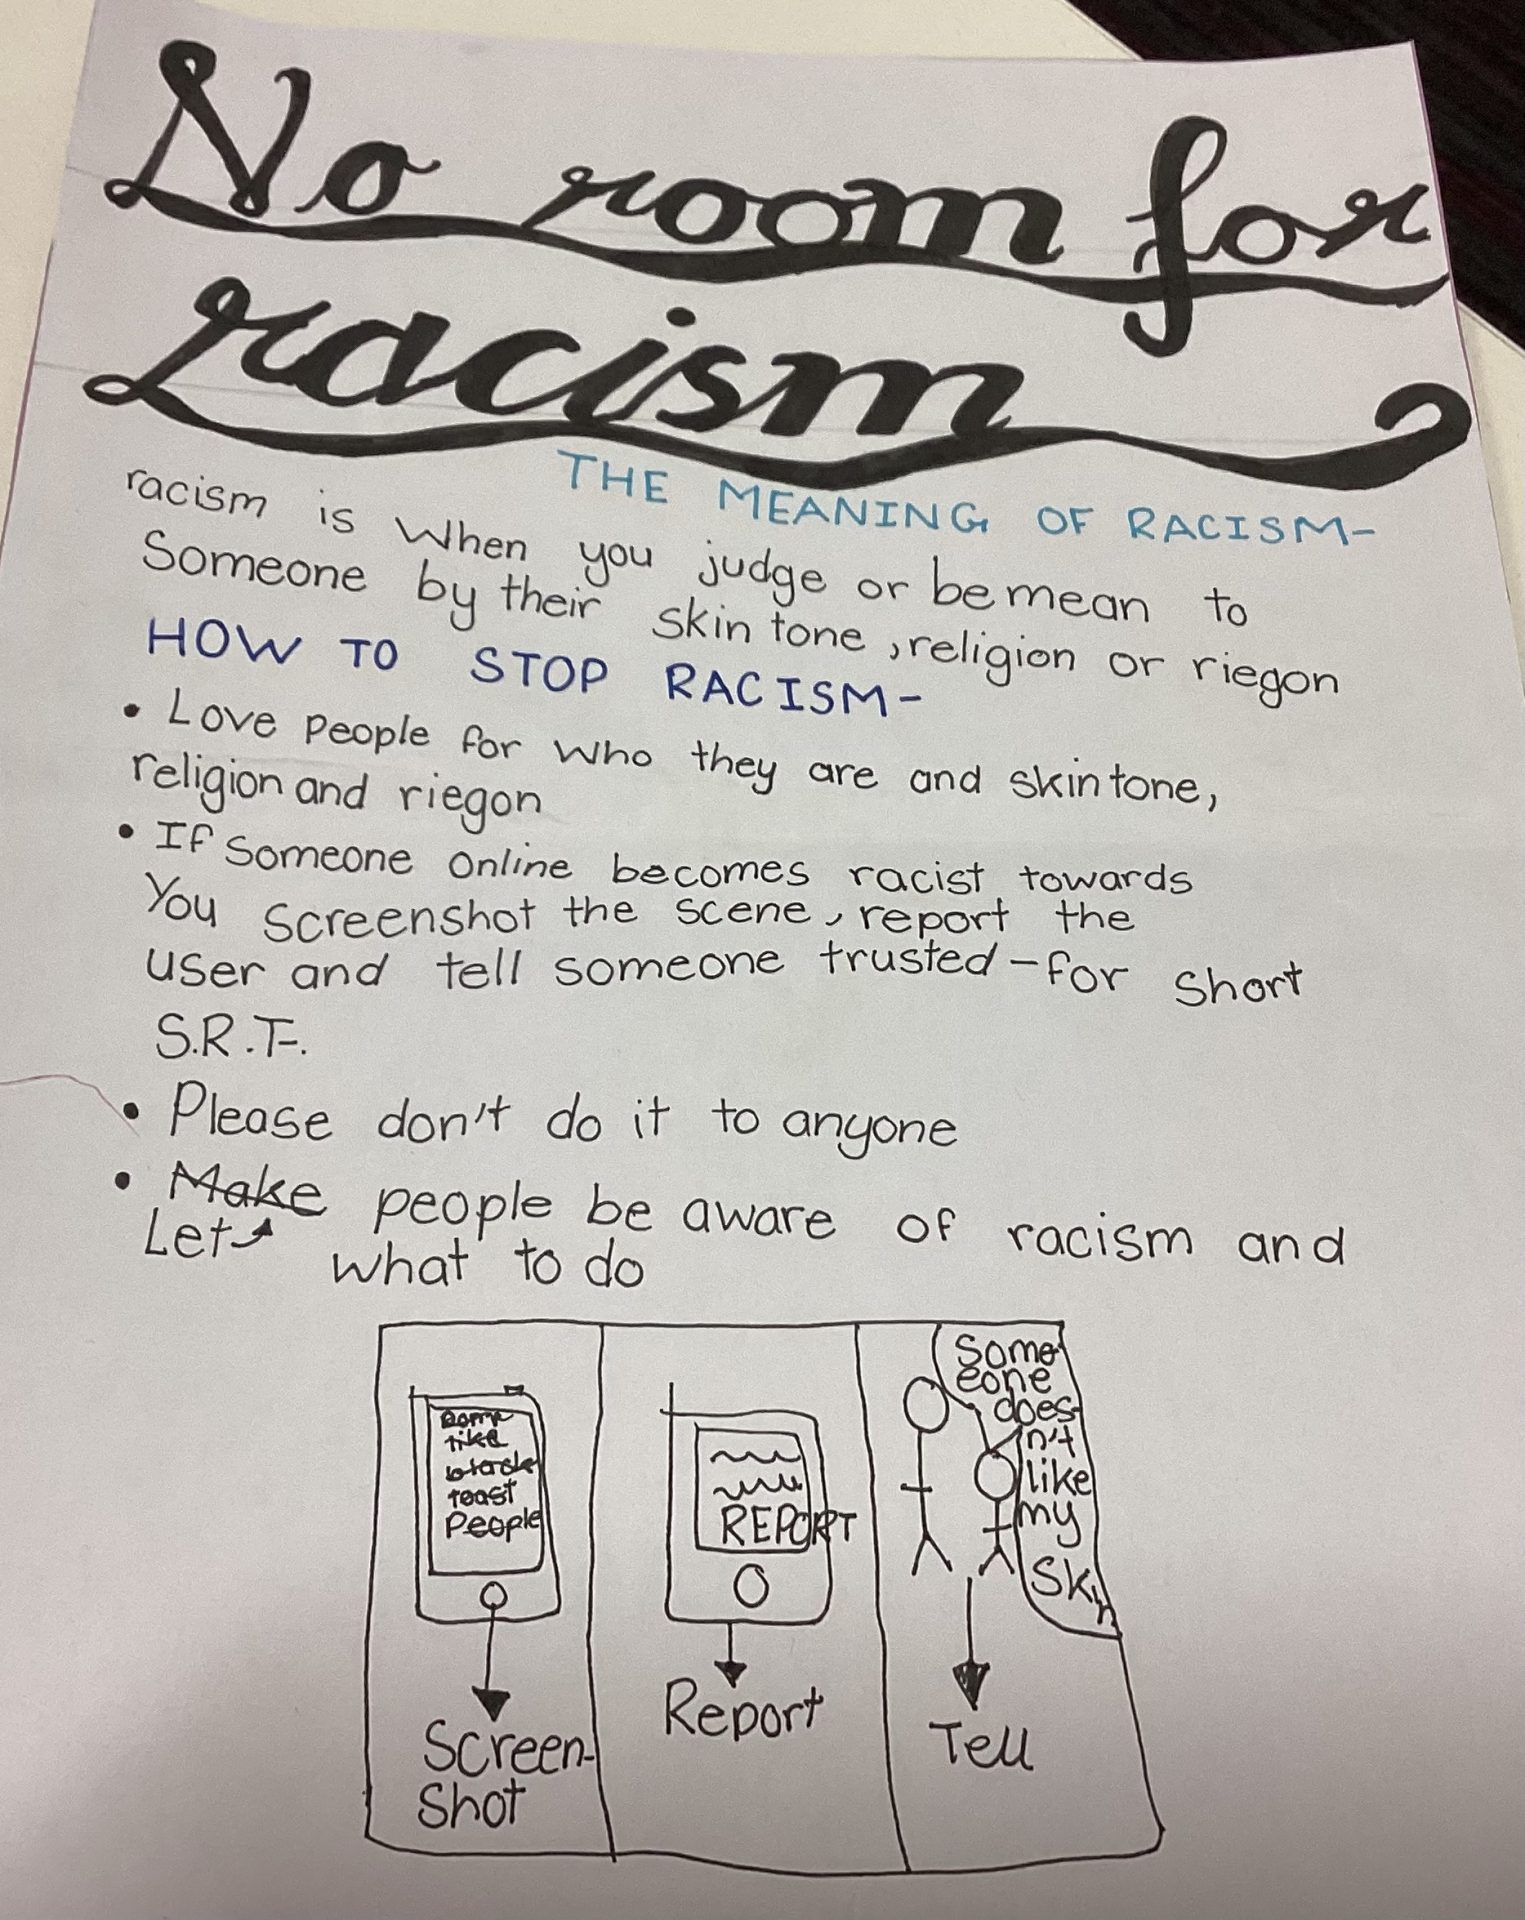 No room for
racism
THE MEANING OF RACISM-
racism is when you judge or be mean to
Someone by their skin tone, religion or riegon
HOW TO STOP RACISM-
• Love people for who they are and skin tone,
religion and riegon
• If someone online becomes racist towards
You screenshot the scene, report the
user and tell someone trusted - for short
S.R.T.
• Please don't do it to anyone
• Make people be aware of racism and
Let
what to do
like
toast
People
REPORT
Some
eone
does-
n't
like
my
Skin
Screen-
Shot
Report
Tell